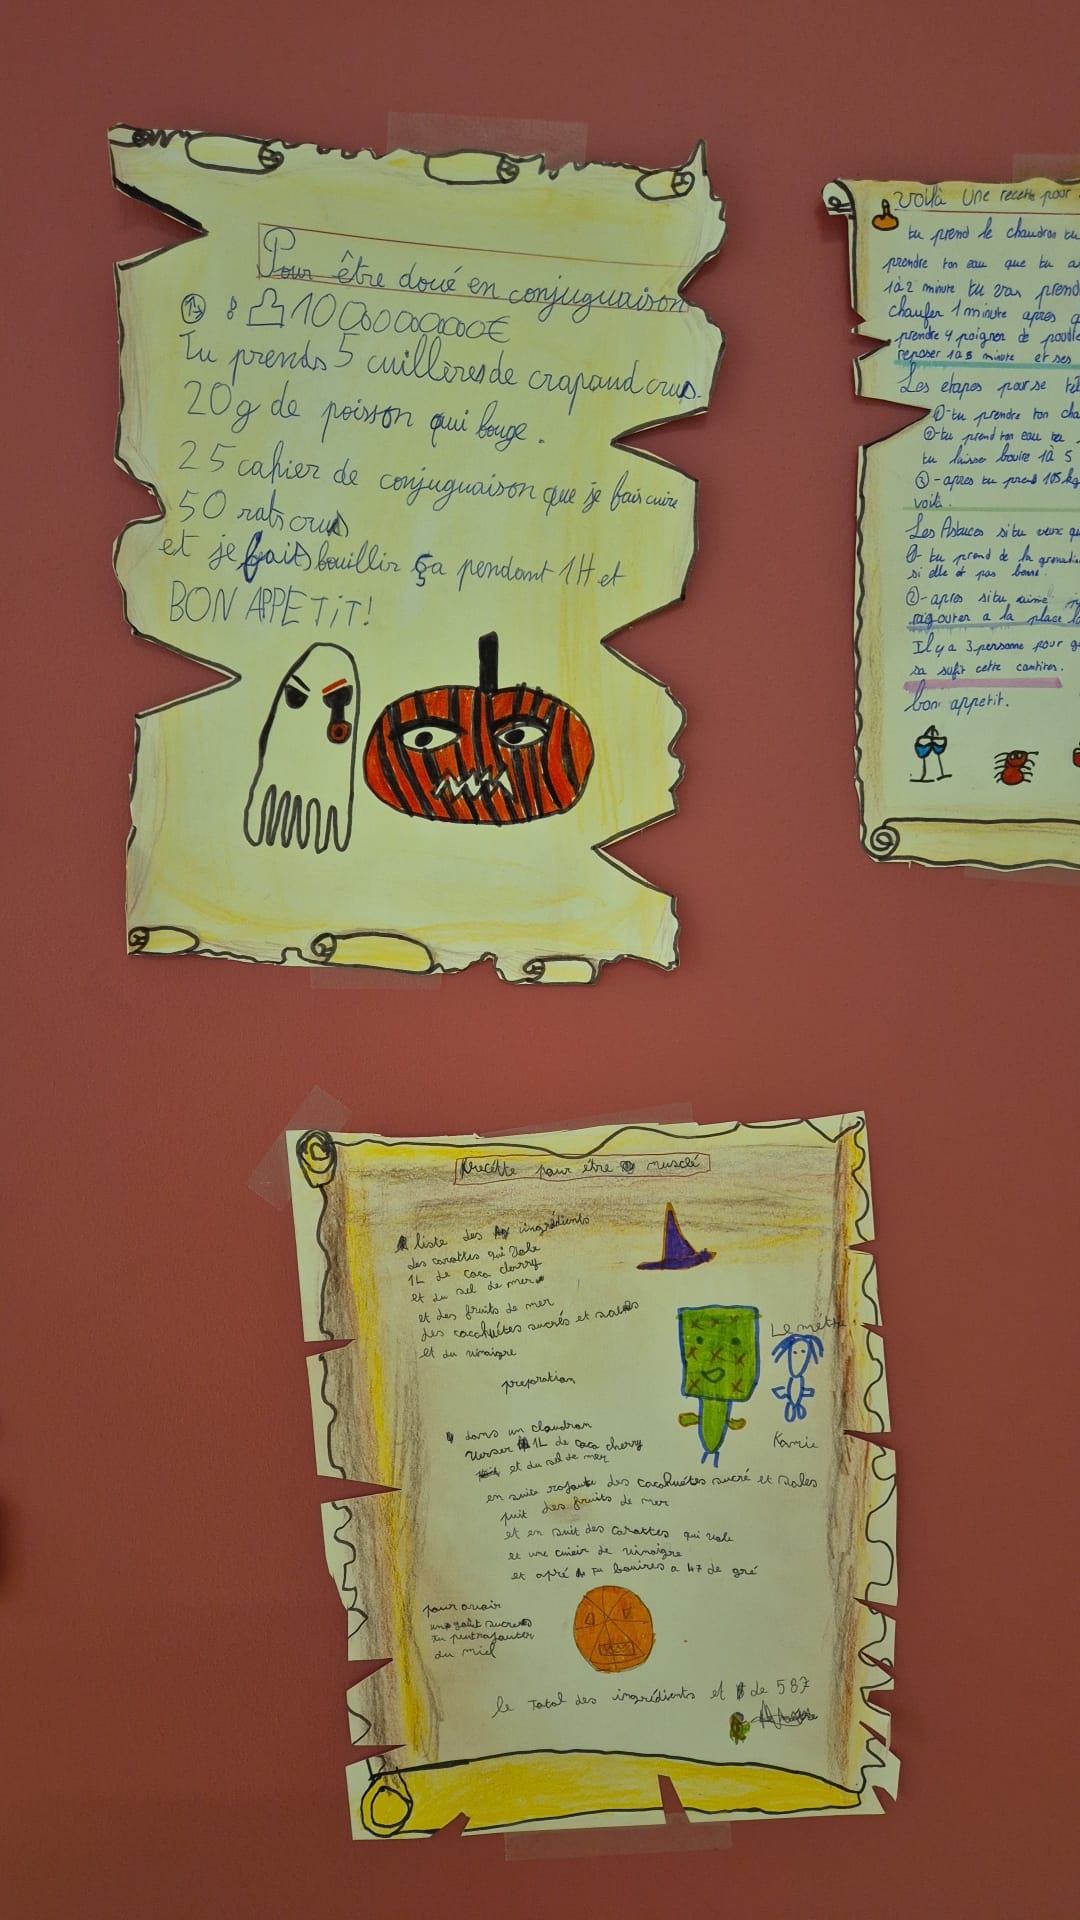 Pour être doué en conjuguaison
100000000000€
Tu prends 5 cuillères de crapaud crus.
20g de poisson qui bouge.
25 cahier de conjuguaison que je fais cuire
50 rats crus
et je fait bouillir ça pendant 1H et
BON APPETiT!
voilà Une recette pour
tu prend le chaudron tu
prendre ton eau que tu
1à2 minute tu vas prend
chaufer 1 minute apres
prendre 4 poigner de poudre
reposer 1à5 minute et ses
Les etapes pour se
①-tu prendre ton cha
②-tu prend ton eau tu
tu laisser bouire 1à 5
③-apres tu prend 105kg
voilà.
Les Astuces si tu veux
①-tu prend de la grenadi
si elle et pas bonne.
②-apres si tu aime
rajouter a la place
Il y a 3 personne pour
sa sufit cette cantiter.
bon appetit.
Recétte pour être musclé
liste des ingrédients
des carottes qui vole
1L de caca cherry
et du sel de mer
et des fruits de mer
des cacahuétes sucrés et salés
et du vinaigre
preparation
dans un claudron
verser 1L de caca cherry
et du sel de mer
en suite rajoute des cacahuétes sucré et sales
puit des fruits de mer
et en suit des carottes qui vole
et une cuieir de vinaigre
et apré tu bouires a 47 de gré
pour avoir
un goût sucré
tu peut rajouter
du miel
le Total des ingrédients et de 587